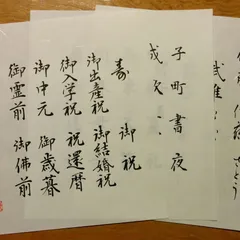 さとう
子町書夜
寿 御祝
御出産祝 御結婚祝
御入学祝 祝還暦
御中元 御歳暮
御霊前 御佛前